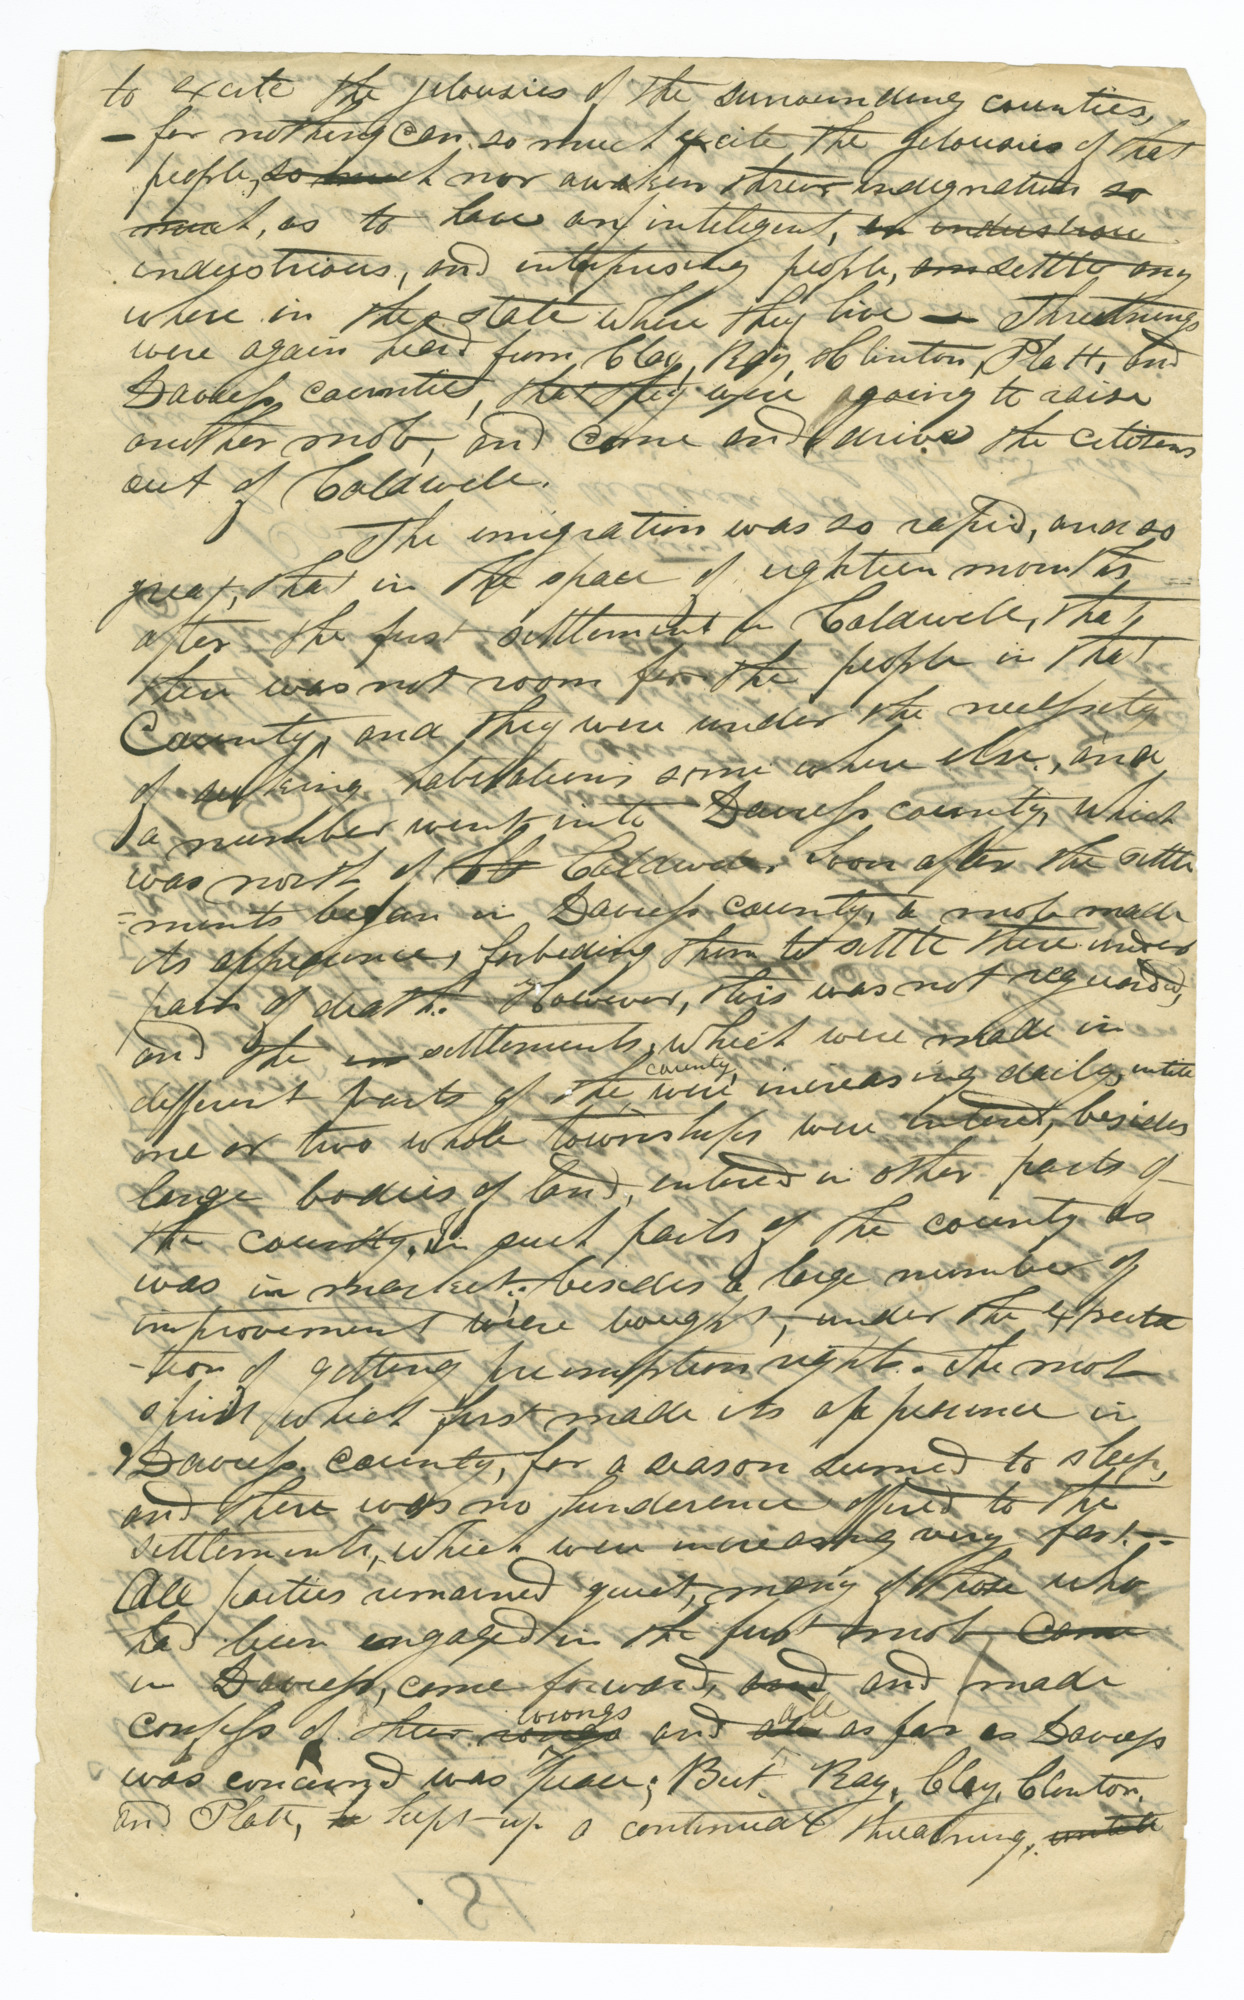 to excite the jelousies of the surrounding counties,
– for nothing can so much excite the jelousies of that
people, so much nor awaken threir indegnation so
much, as to have an intelegent, an industriou
industrious, and interprising people, am settle any
where in the state where they live – Threetnings
were again heard from Clay, Ray, Clinton, Platt, and
Davess counties, that they were agoing to raise
another mob, and come and drive the citizens
out of Caldwell.
The emigration was so rapid, and so
great, that in the space of eighteen months
after the first settlement in Caldwell, that
there was not room for the people in that
County, and they were under the necessity
of seeking habitations some where else, and
a number went into Davess county, which
was north of Caldwell. Soon after the settle
=ments began in Davess county, a mob made
its appearance, forbeding them to settle there under
pain of death. However, this was not reguarded,
and the in settlements, which were made in
different parts of the county, were increasing daily, untill
one or two whole townships were entered, besides
large bodies of land, entered in other parts of
the county, in such parts of the county as
was in market; besides a large number of
improvement were bought, under the expecta
-tion of getting preemption right. The mob
spirit which first made its appearence in
Davess county, for a season seemed to sleep,
and there was no hinderence offered to the
settlements, which were increasing very fast. –
All parties remained quiet, many of those who
had been engaged in the first mob came
in Davess, came forward, and and made
confess of their rongs wrongs and all as far as Davess
was concerned was peace; But Ray, Clay, Clinton,
and Platt, kept up a continual threatning, untill